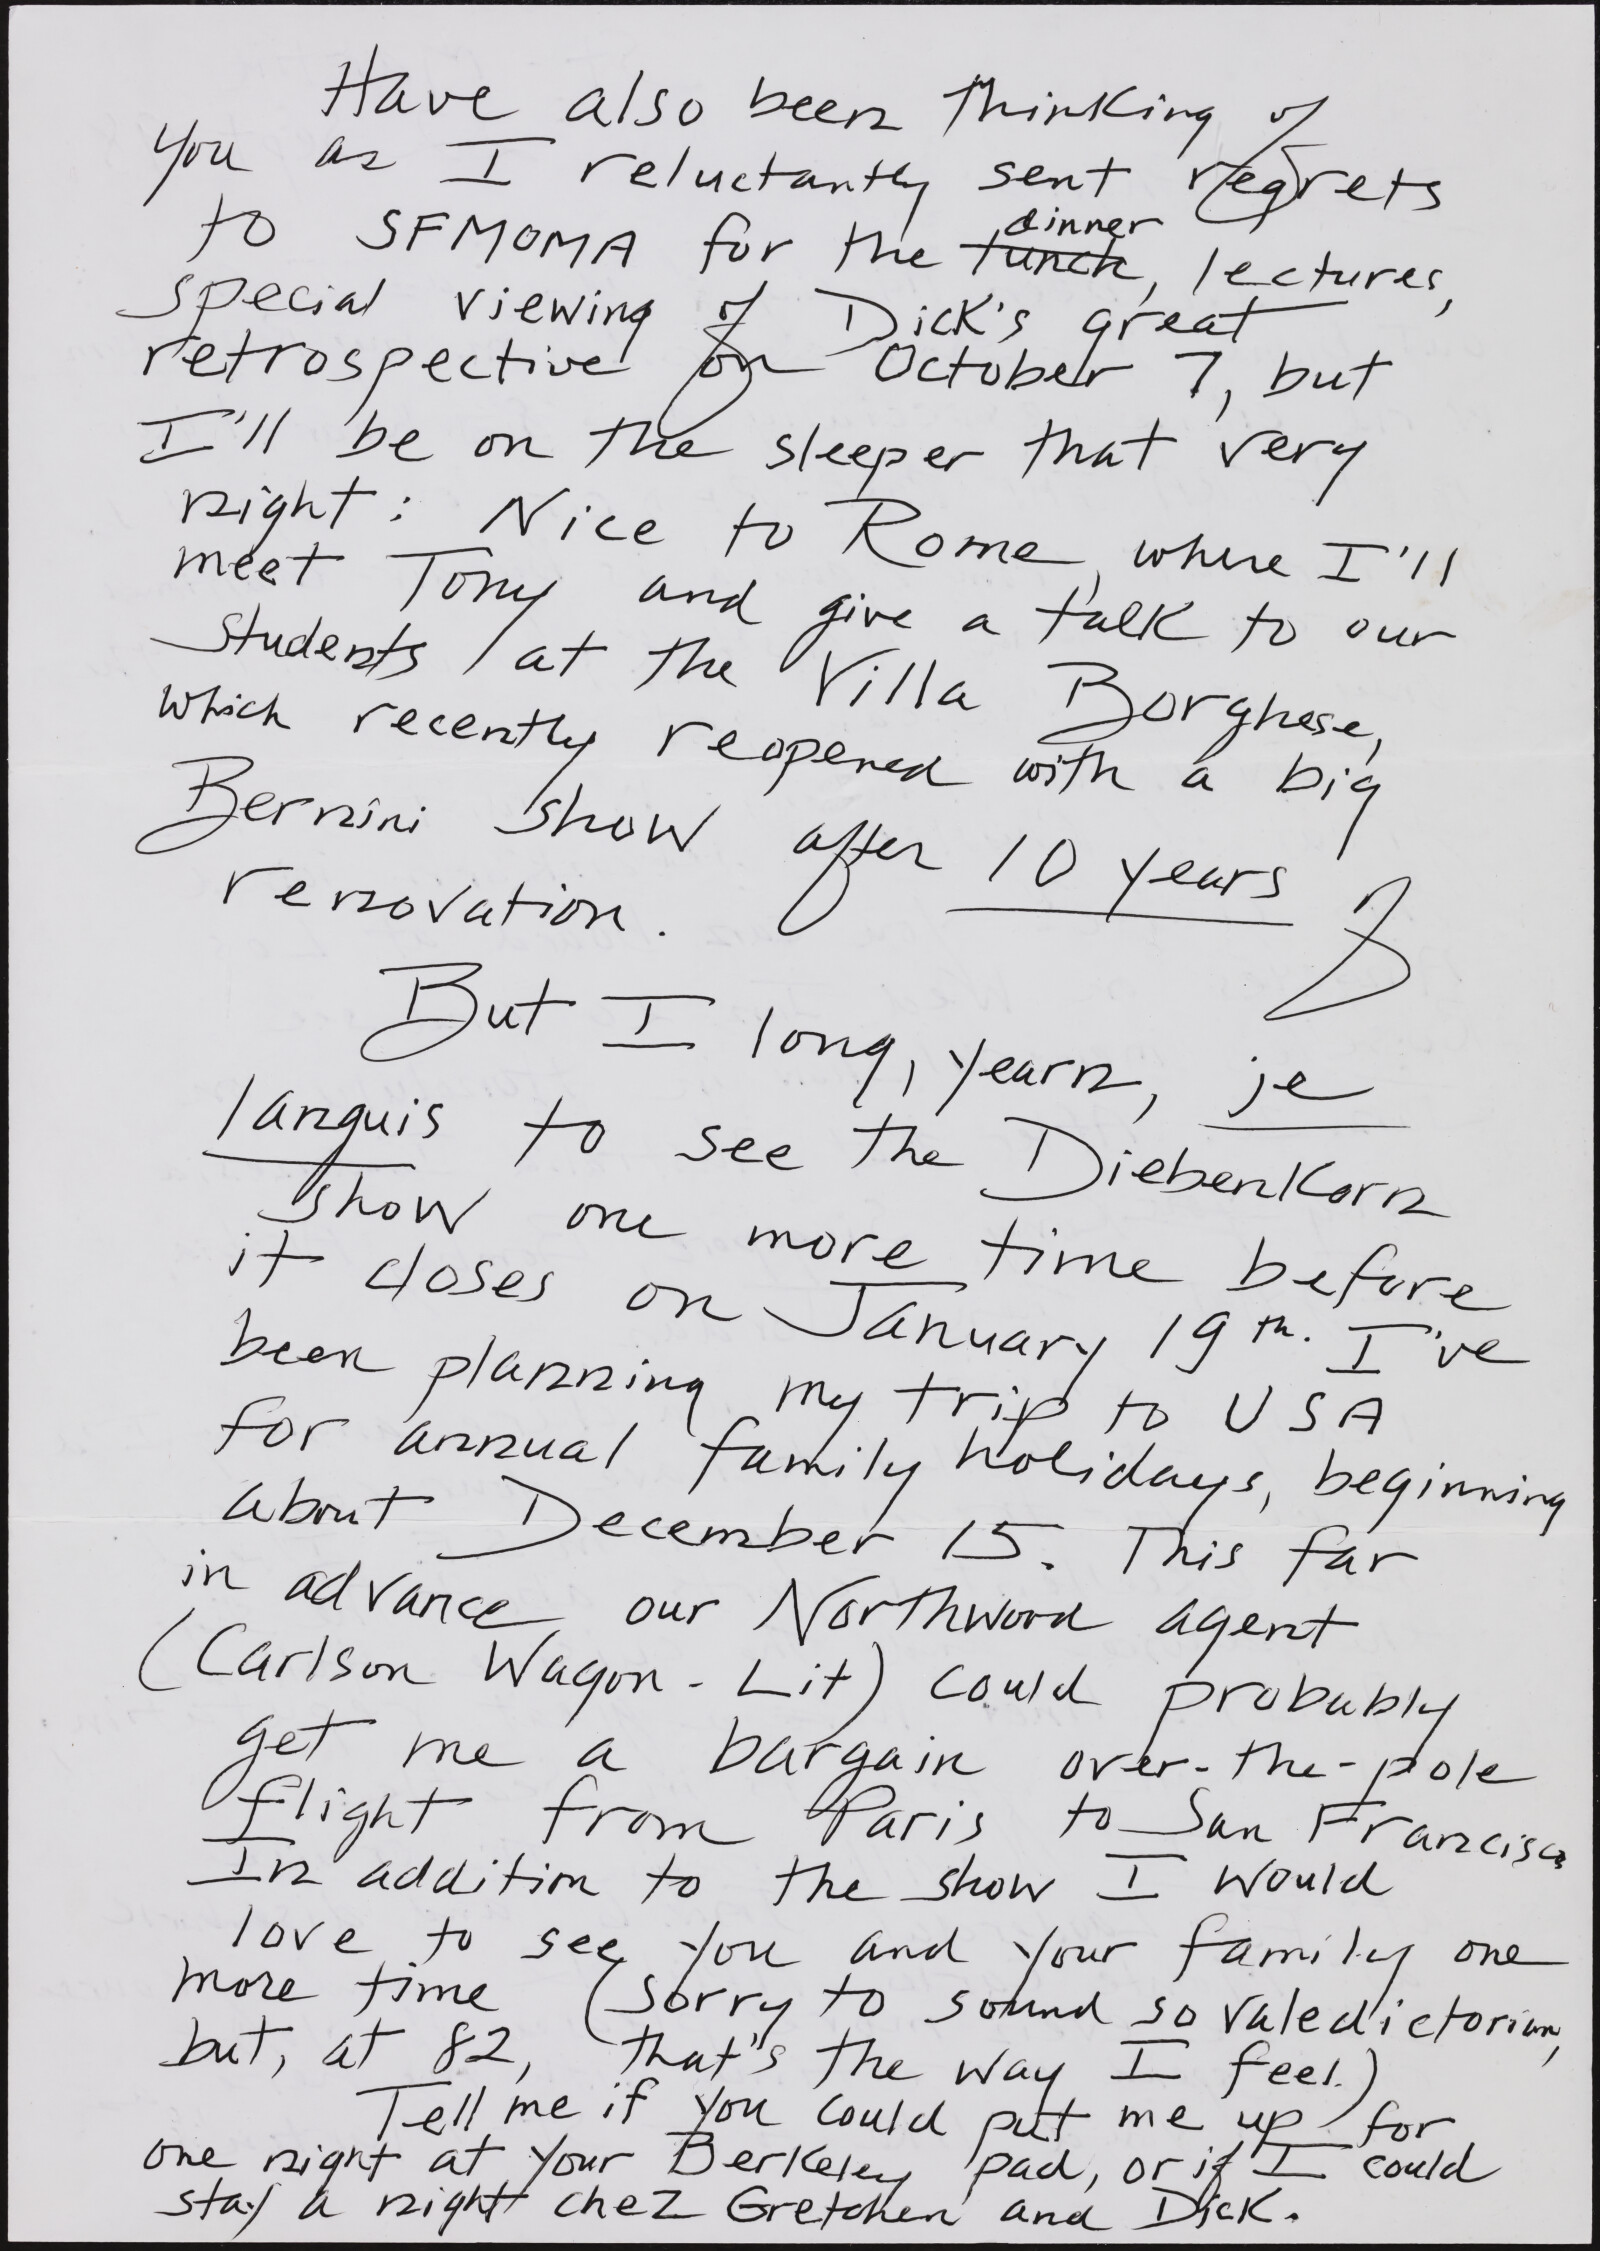 Have also been thinking of
you as I reluctantly sent regrets
to SFMOMA for the lunch dinner, lectures,
special viewing of Dick's great
retrospective on October 7, but
I'll be on the sleeper that very
night: Nice to Rome, where I'll
meet Tony and give a talk to our
students at the Villa Borghese,
which recently reopened with a big
Bernini show after 10 years of
renovation.
But I long, yearn, je
languis to see the Diebenkorn
show one more time before
it closes on January 19th. I've
been planning my trip to USA
for annual family holidays, beginning
about December 15. This far
in advance our Northword agent
(Carlson Wagon-Lit) could probably
get me a bargain over-the-pole
flight from Paris to San Francisco
In addition to the show I would
love to see you and your family one
more time (sorry to sound so valedictorian,
but, at 82, that's the way I feel.)
Tell me if you could put me up for
one night at your Berkeley pad, or if I could
stay a night chez Gretchen and Dick.